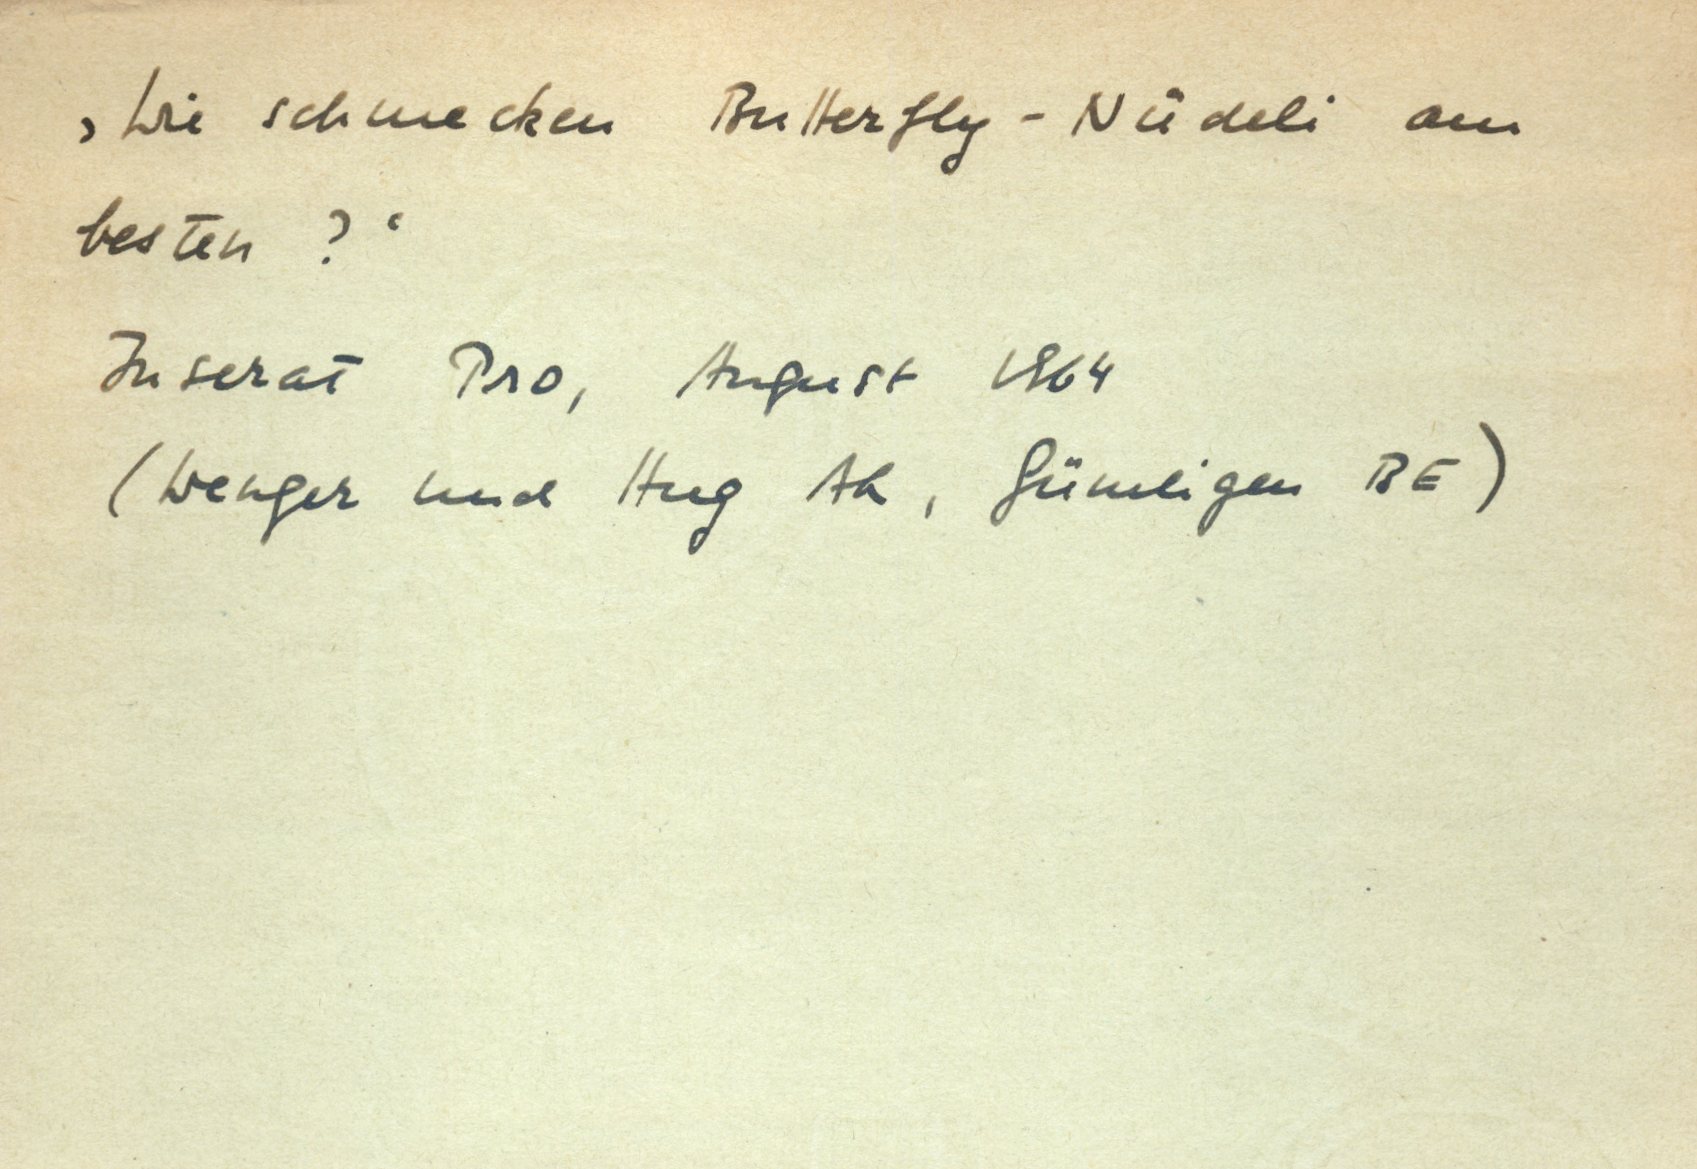 ‚Wie schmecken Butterfly-Nüdeli am
besten?‘
Inserat Pro, August 1964
(Wenger und Hug AG, Gümligen BE)